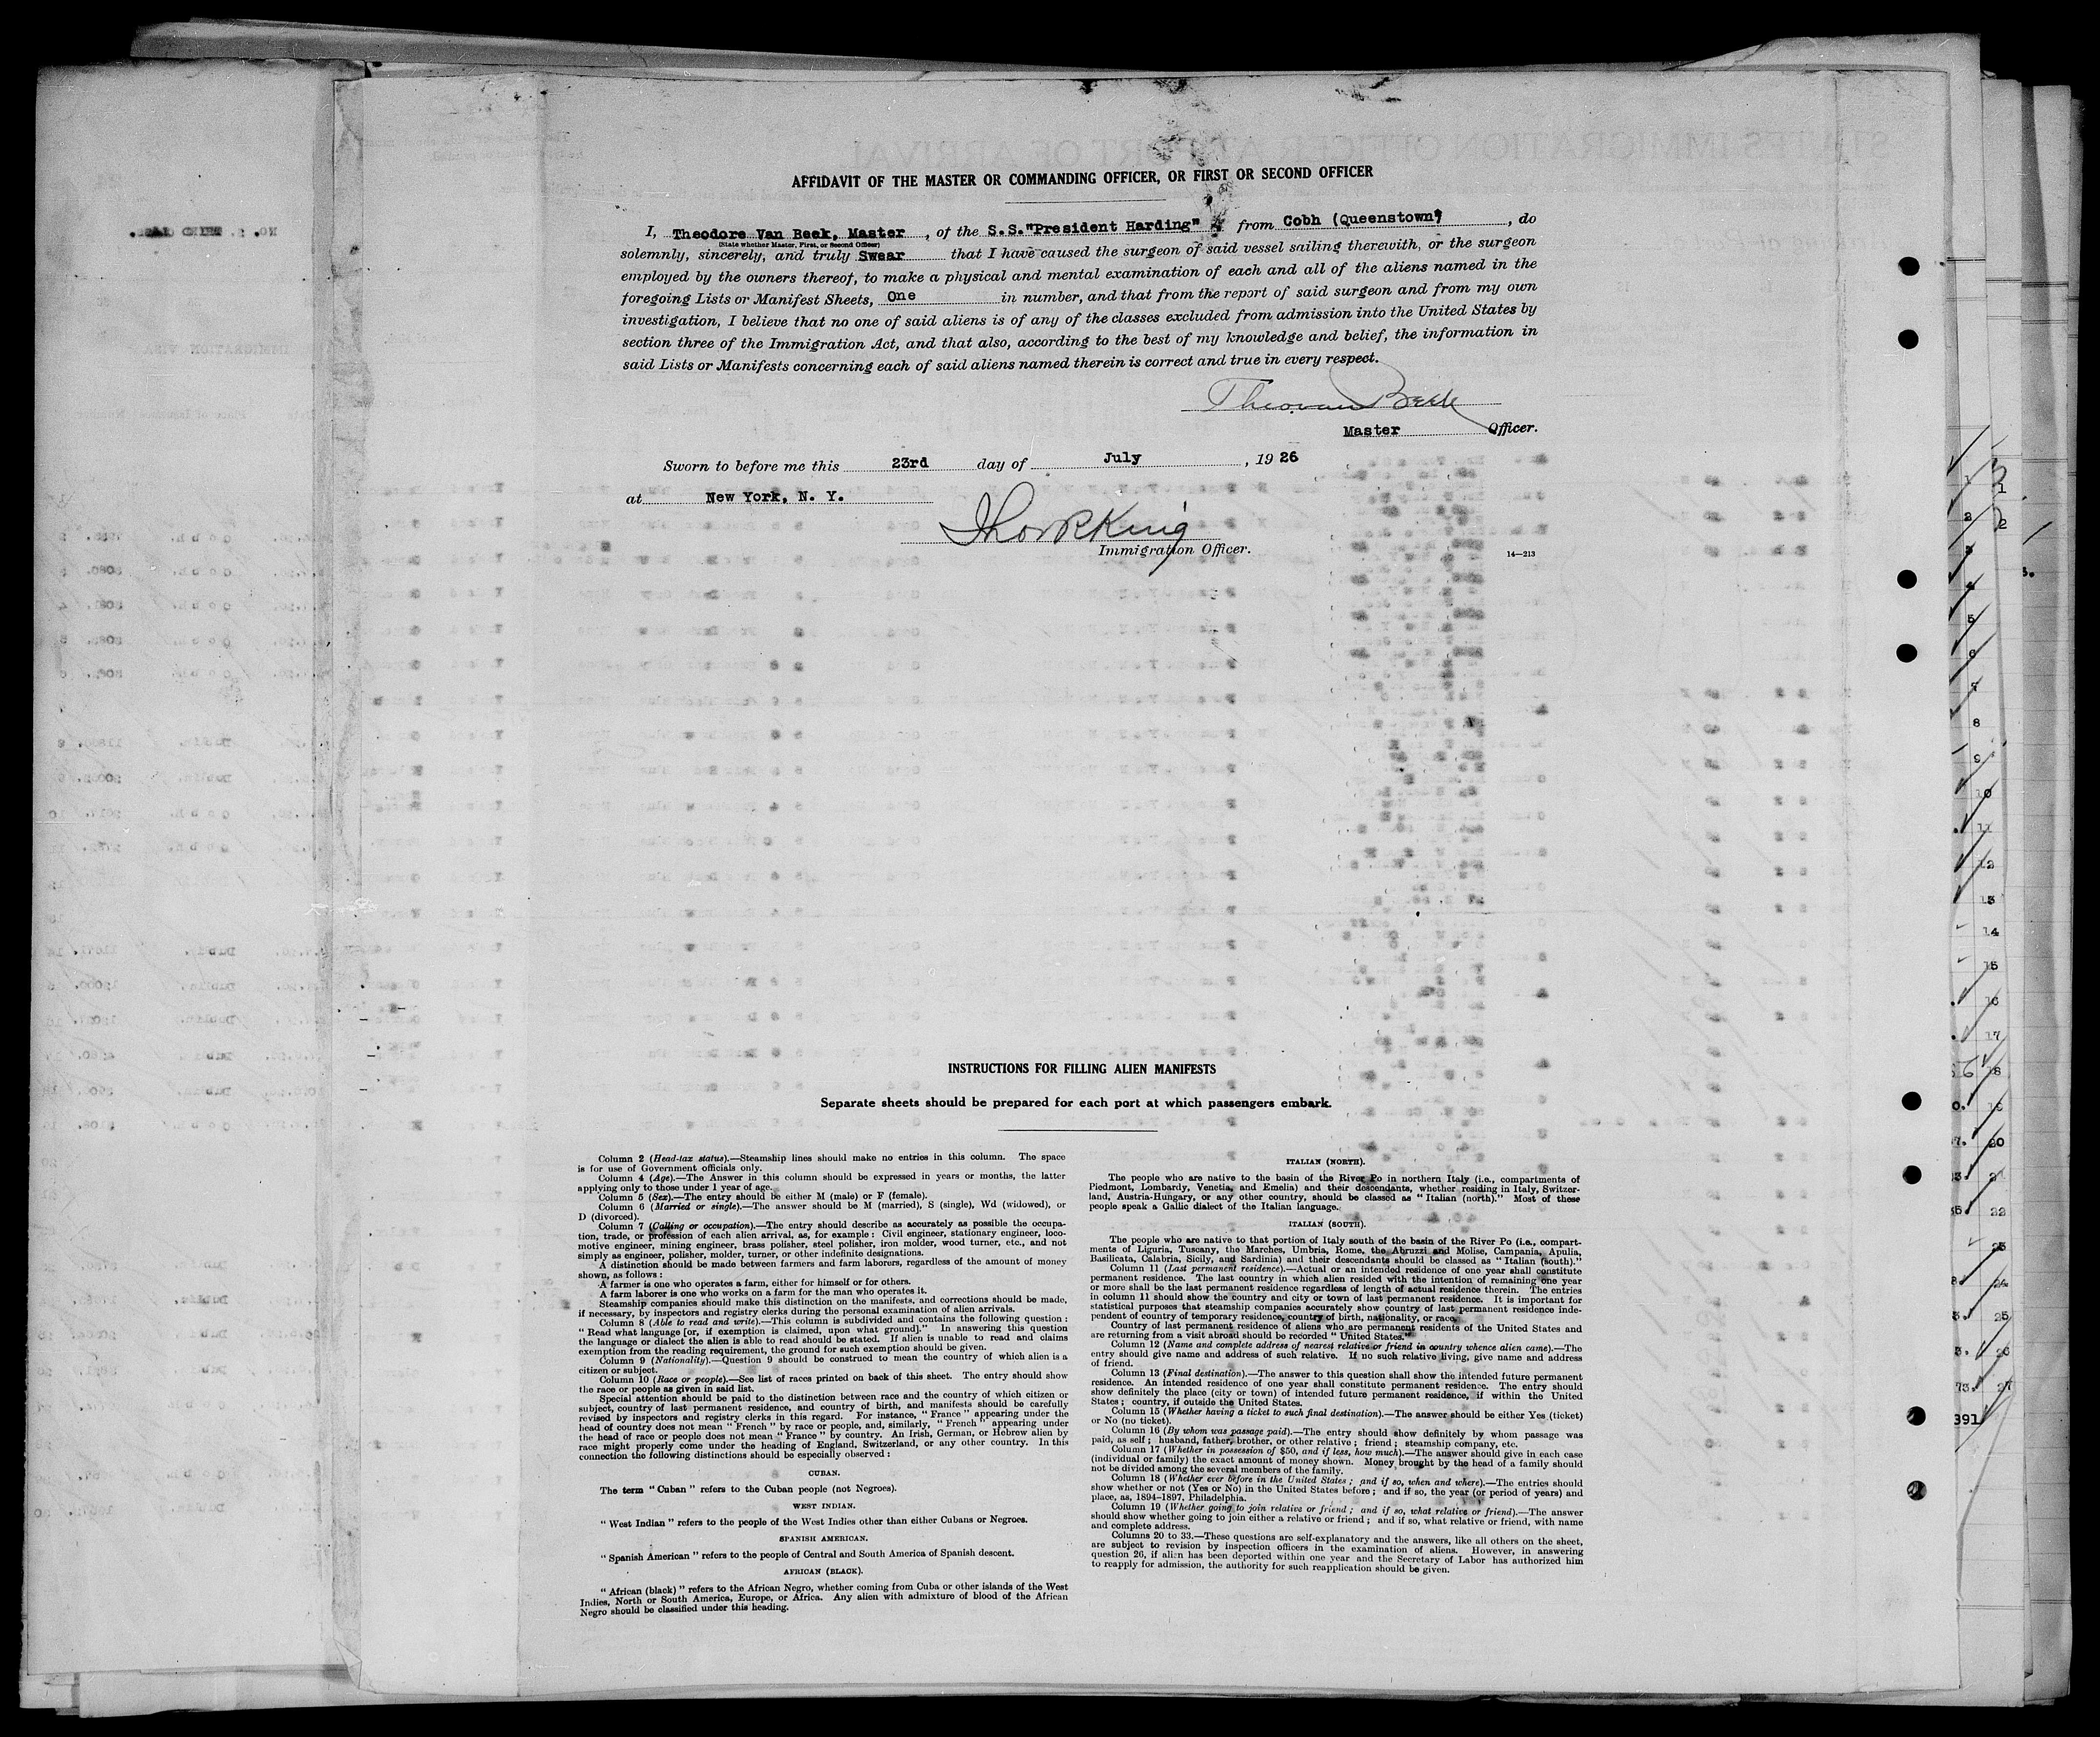 AFFIDAVIT OF THE MASTER OR COMMANDING OFFICER, OR FIRST OR SECOND OFFICER
I, Theodore Van Beek, Master, of the S.S."President Harding" from Cobh (Queenstown), do
(State whether Master, First, or Second Officer)
solemnly, sincerely, and truly Swear that I have caused the surgeon of said vessel sailing therewith, or the surgeon
employed by the owners thereof, to make a physical and mental examination of each and all of the aliens named in the
foregoing Lists or Manifest Sheets, One in number, and that from the report of said surgeon and from my own
investigation, I believe that no one of said aliens is of any of the classes excluded from admission into the United States by
section three of the Immigration Act, and that also, according to the best of my knowledge and belief, the information in
said Lists or Manifests concerning each of said aliens named therein is correct and true in every respect.
Theo van Beek
Master Officer.
Sworn to before me this 23rd day of July, 19 26
at New York, N. Y.
Immigration Officer.
14—213
INSTRUCTIONS FOR FILLING ALIEN MANIFESTS
Separate sheets should be prepared for each port at which passengers embark.
Column 2 (Head-tax status).—Steamship lines should make no entries in this column. The space
is for use of Government officials only.
Column 4 (Age).—The Answer in this column should be expressed in years or months, the latter
applying only to those under 1 year of age.
Column 5 (Sex).—The entry should be either M (male) or F (female).
Column 6 (Married or single).—The answer should be M (married), S (single), Wd (widowed), or
D (divorced).
Column 7 (Calling or occupation).—The entry should describe as accurately as possible the occupa-
tion, trade, or profession of each alien arrival, as, for example: Civil engineer, stationary engineer, loco-
motive engineer, mining engineer, brass polisher, steel polisher, iron molder, wood turner, etc., and not
simply as engineer, polisher, molder, turner, or other indefinite designations.
A distinction should be made between farmers and farm laborers, regardless of the amount of money
shown, as follows:
A farmer is one who operates a farm, either for himself or for others.
A farm laborer is one who works on a farm for the man who operates it.
Steamship companies should make this distinction on the manifests, and corrections should be made,
if necessary, by inspectors and registry clerks during the personal examination of alien arrivals.
Column 8 (Able to read and write).—This column is subdivided and contains the following question:
"Read what language [or, if exemption is claimed, upon what ground]." In answering this question
the language or dialect the alien is able to read should be stated. If alien is unable to read and claims
exemption from the reading requirement, the ground for such exemption should be given.
Column 9 (Nationality).—Question 9 should be construed to mean the country of which alien is a
citizen or subject.
Column 10 (Race or people).—See list of races printed on back of this sheet. The entry should show
the race or people as given in said list.
Special attention should be paid to the distinction between race and the country of which citizen or
subject, country of last permanent residence, and country of birth, and manifests should be carefully
revised by inspectors and registry clerks in this regard. For instance, "France" appearing under the
head of country does not mean "French" by race or people, and, similarly, "French" appearing under
the head of race or people does not mean "France" by country. An Irish, German, or Hebrew alien by
race might properly come under the heading of England, Switzerland, or any other country. In this
connection the following distinctions should be especially observed:
CUBAN.
The term "Cuban" refers to the Cuban people (not Negroes).
WEST INDIAN.
"West Indian" refers to the people of the West Indies other than either Cubans or Negroes.
SPANISH AMERICAN.
"Spanish American" refers to the people of Central and South America of Spanish descent.
AFRICAN (BLACK).
"African (black)" refers to the African Negro, whether coming from Cuba or other islands of the West
Indies, North or South America, Europe, or Africa. Any alien with admixture of blood of the African
Negro should be classified under this heading.
ITALIAN (NORTH).
The people who are native to the basin of the River Po in northern Italy (i.e., compartments of
Piedmont, Lombardy, Venetia, and Emelia) and their descendants, whether residing in Italy, Switzer-
land, Austria-Hungary, or any other country, should be classed as "Italian (north)." Most of these
people speak a Gallic dialect of the Italian language.
ITALIAN (SOUTH).
The people who are native to that portion of Italy south of the basin of the River Po (i.e., compart-
ments of Liguria, Tuscany, the Marches, Umbria, Rome, the Abruzzi and Molise, Campania, Apulia,
Basilicata, Calabria, Sicily, and Sardinia) and their descendants should be classed as "Italian (south)."
Column 11 (Last permanent residence).—Actual or an intended residence of one year shall constitute
permanent residence. The last country in which alien resided with the intention of remaining one year
or more shall be the last permanent residence regardless of length of actual residence therein. The entries
in column 11 should show the country and city or town of last permanent residence. It is important for
statistical purposes that steamship companies accurately show country of last permanent residence inde-
pendent of country of temporary residence, country of birth, nationality, or race.
Country of last permanent residence of aliens who are permanent residents of the United States and
are returning from a visit abroad should be recorded "United States."
Column 12 (Name and complete address of nearest relative or friend in country whence alien came).—The
entry should give name and address of such relative. If no such relative living, give name and address
of friend.
Column 13 (Final destination).—The answer to this question shall show the intended future permanent
residence. An intended residence of one year shall constitute permanent residence. The entry should
show definitely the place (city or town) of intended future permanent residence, if within the United
States; country, if outside the United States.
Column 15 (Whether having a ticket to such final destination).—The answer should be either Yes (ticket)
or No (no ticket).
Column 16 (By whom was passage paid).—The entry should show definitely by whom passage was
paid, as self; husband, father, brother, or other relative; friend; steamship company, etc.
Column 17 (Whether in possession of $50, and if less, how much).—The answer should give in each case
(individual or family) the exact amount of money shown. Money brought by the head of a family should
not be divided among the several members of the family.
Column 18 (Whether ever before in the United States; and if so, when and where).—The entries should
show whether or not (Yes or No) in the United States before; and if so, the year (or period of years) and
place, as, 1894-1897, Philadelphia.
Column 19 (Whether going to join relative or friend; and if so, what relative or friend).—The answer
should show whether going to join either a relative or friend; and if so, what relative or friend, with name
and complete address.
Columns 20 to 33.—These questions are self-explanatory and the answers, like all others on the sheet,
are subject to revision by inspection officers in the examination of aliens. However, in answering
question 26, if alien has been deported within one year and the Secretary of Labor has authorized him
to reapply for admission, the authority for such reapplication should be given.